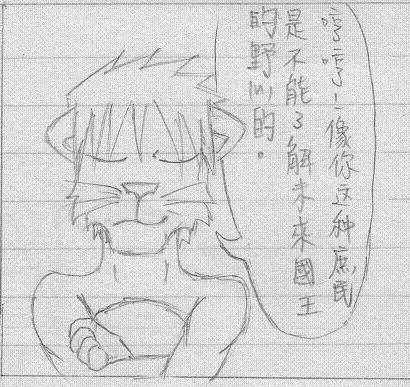 哼哼!像你这种庶民
是不能了解未來國王
的野心的。